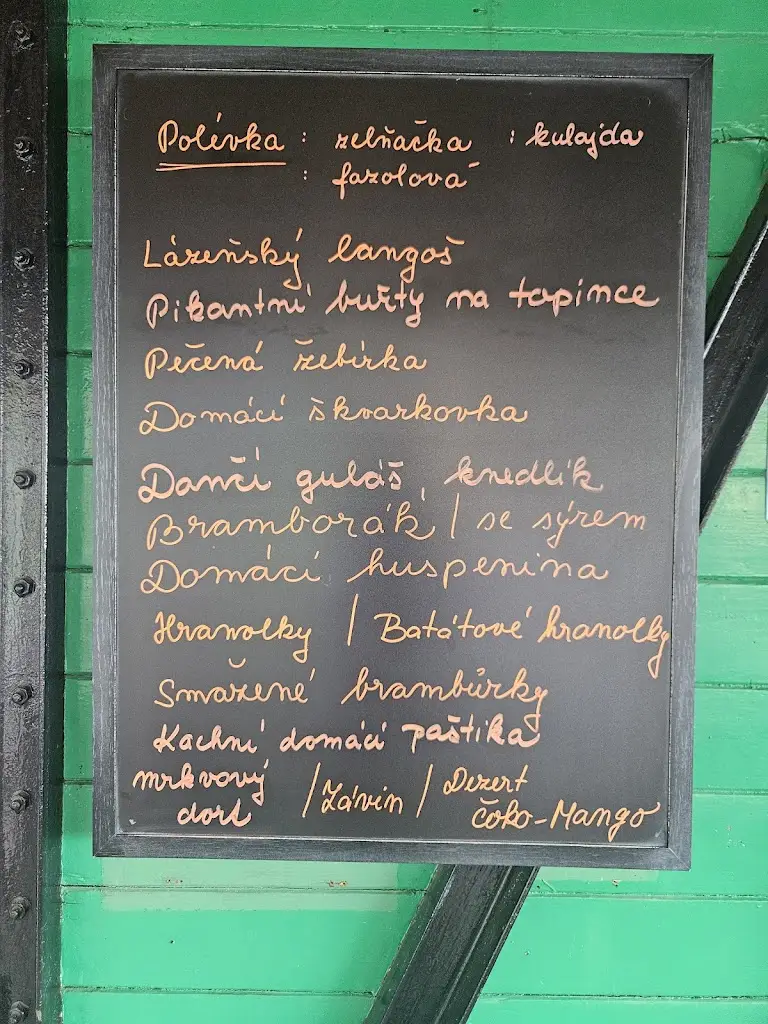 Polévka : zelňačka : kulajda
: fazolová
Lázeňský langoš
Pikantní buřty na topince
Pečená žebírka
Domácí škvarkovka
Dančí guláš, knedlík
Bramborák / se sýrem
Domácí huspenina
Hranolky / Batátové hranolky
Smažené brambůrky
Kachní domácí paštika
mrkvový dort / Závin / Dezert Čoko-Mango